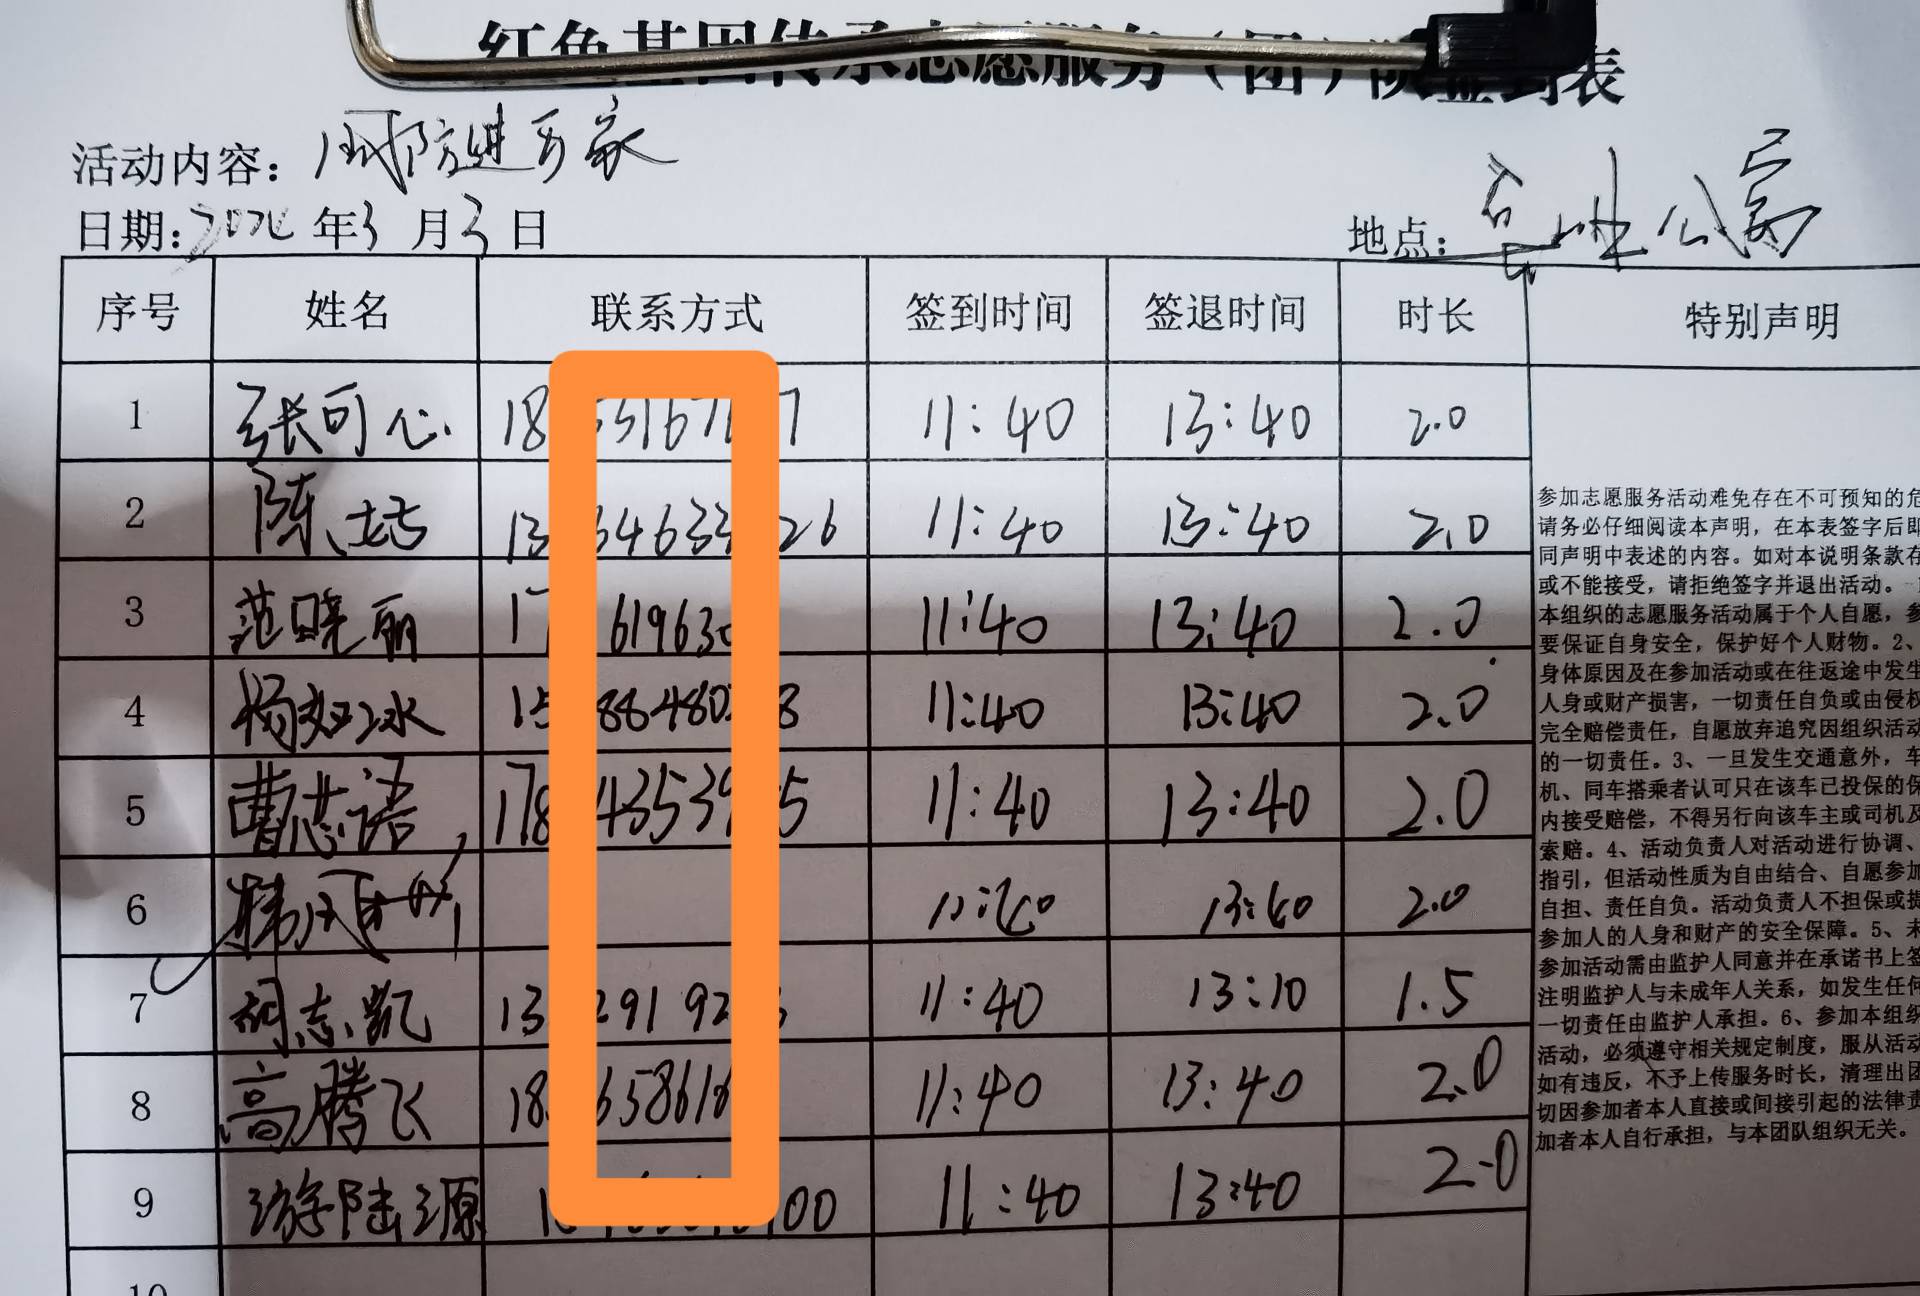 红色基因传承志愿服务（团）队签到表
活动内容：国防进万家
日期：年3月3日
地点：公寓
序号 姓名 联系方式 签到时间 签退时间 时长 特别声明
1 张可心 11:40 13:40 2.0
2 陈 11:40 13:40 2.0
3 范晓丽 11:40 13:40 2.0
4 杨 冰 11:40 13:40 2.0
5 曹志诺 11:40 13:40 2.0
6 13:40 2.0
7 胡志凯 11:40 13:10 1.5
8 高腾飞 11:40 13:40 2.0
9 游陆源 11:40 13:40 2.0
10
参加志愿服务活动难免存在不可预知的危
请务必仔细阅读本声明，在本表签字后即
同声明中表述的内容。如对本说明条款存
或不能接受，请拒绝签字并退出活动。
本组织的志愿服务活动属于个人自愿，参
要保证自身安全，保护好个人财物。2、
身体原因及在参加活动或在往返途中发生
人身或财产损害，一切责任自负或由侵权
完全赔偿责任，自愿放弃追究因组织活动
的一切责任。3、一旦发生交通意外，车
机、同车搭乘者认可只在该车已投保的保
内接受赔偿，不得另行向该车主或司机及
索赔。4、活动负责人对活动进行协调、
指引，但活动性质为自由结合、自愿参加
自担、责任自负。活动负责人不担保或提
参加人的人身和财产的安全保障。5、未
参加活动需由监护人同意并在承诺书上签
注明监护人与未成年人关系，如发生任何
一切责任由监护人承担。6、参加本组织
活动，必须遵守相关规定制度，服从活动
如有违反，不予上传服务时长，清理出团
切因参加者本人直接或间接引起的法律责
加者本人自行承担，与本团队组织无关。